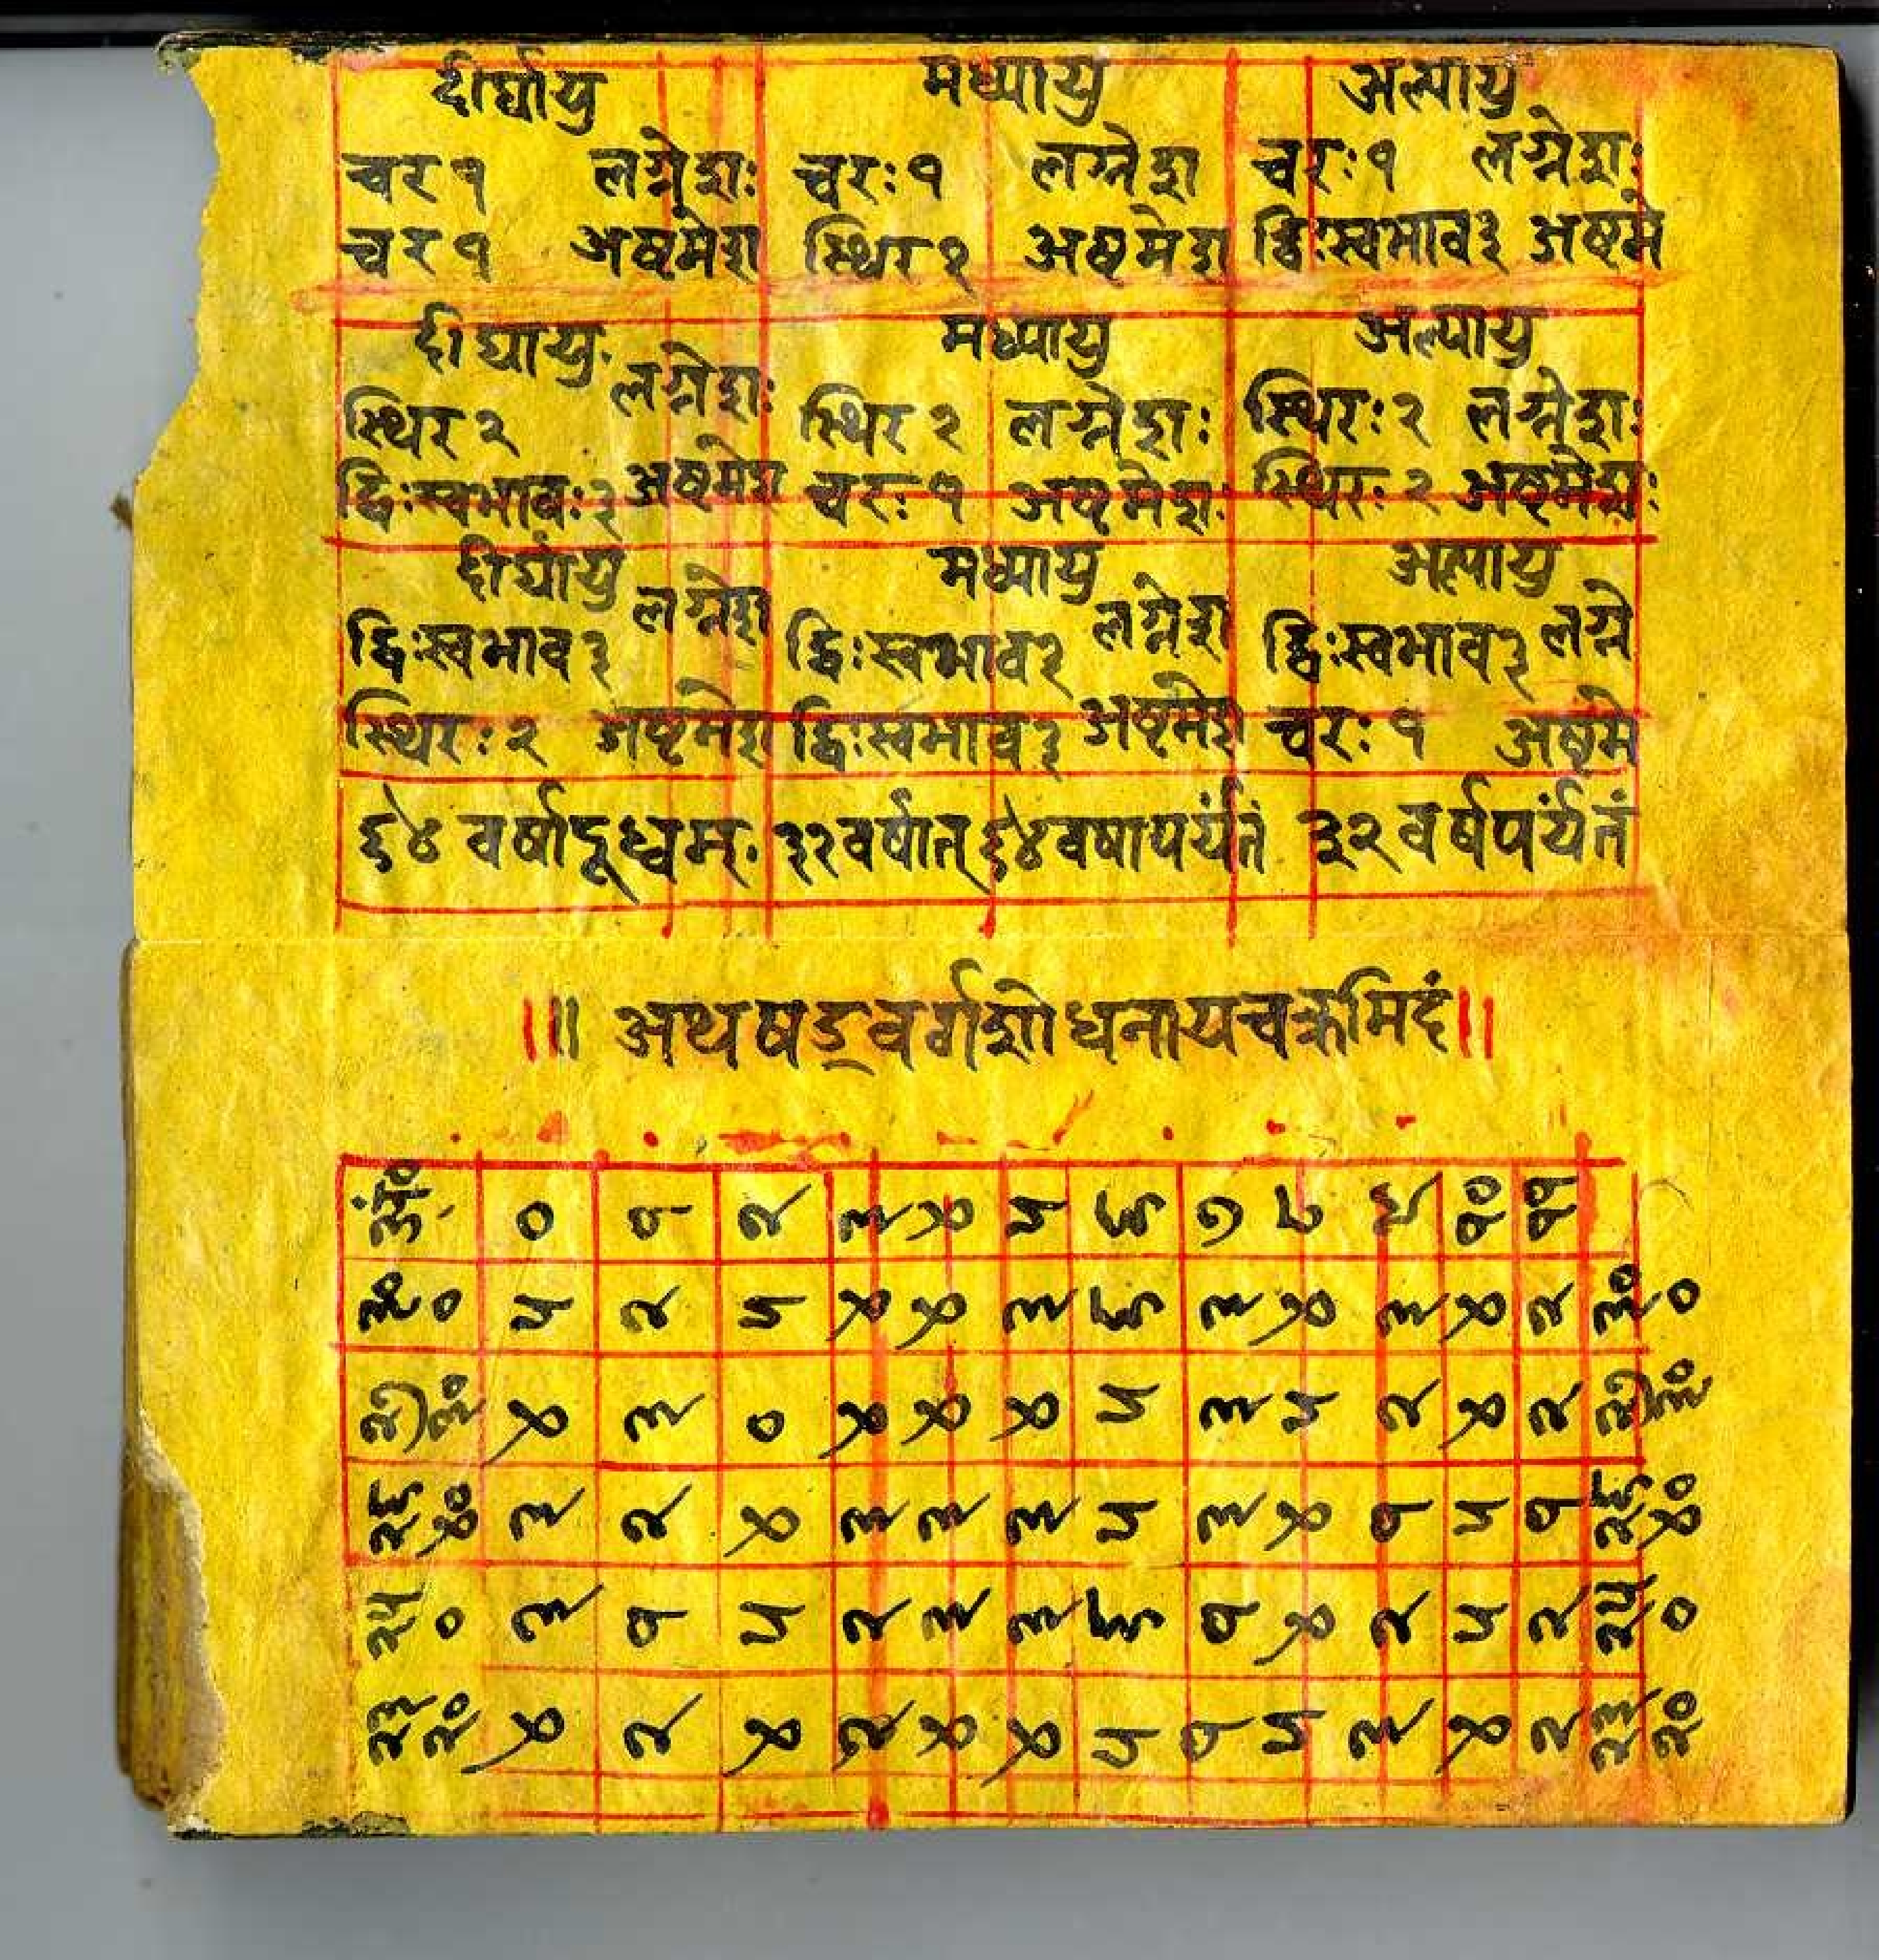 दीर्घायु मध्यायु अल्पायु
चर १ लग्नेशः चरः१ लग्नेश चरः१ लग्नेशः
चर १ अष्टमेश स्थिर२ अष्टमेश द्विःस्वभाव३ अष्टमे
दीर्घायु. मध्यायु अल्पायु
स्थिर २ लग्नेशः स्थिर २ लग्नेशः स्थिरः२ लग्नेशः
द्विःस्वभावः३ अष्टमेश चरः१ अष्टमेशः स्थिरः२ अष्टमेशः
दीर्घायु मध्यायु अल्पायु
द्विःस्वभाव३ लग्नेश द्विःस्वभाव३ लग्नेश द्विःस्वभाव३ लग्ने
स्थिरः२ अष्टमेश द्विःस्वभाव३ अष्टमेश चरः१ अष्टमे
६४ वर्षादूध्वम्. ३२वर्षात् ६४वषापर्यंतं ३२वर्षपर्यंतं
॥। अथषड्वर्गशोधनायचक्रमिदं॥
० १ २ ३ ४ ५ ६ ७ ८ ९ १० ११
० ५ २ ५ ४ ४ ३ ६ ३ ४ ३ ४ २ ०
४ ३ ० ४ ४ ४ ५ ३ ५ २ ४ २
२६ ४० ३ २ ४ ३ ३ ३ ५ ३ ४ १ ५ १ २६ ४०
२५ ० ३ १ ५ २ ३ ३ ६ १ ४ २ ५ २ २५ ०
२३ २० ४ २ ४ २ ४ ४ ५ १ ५ २ ४ २ २३ २०